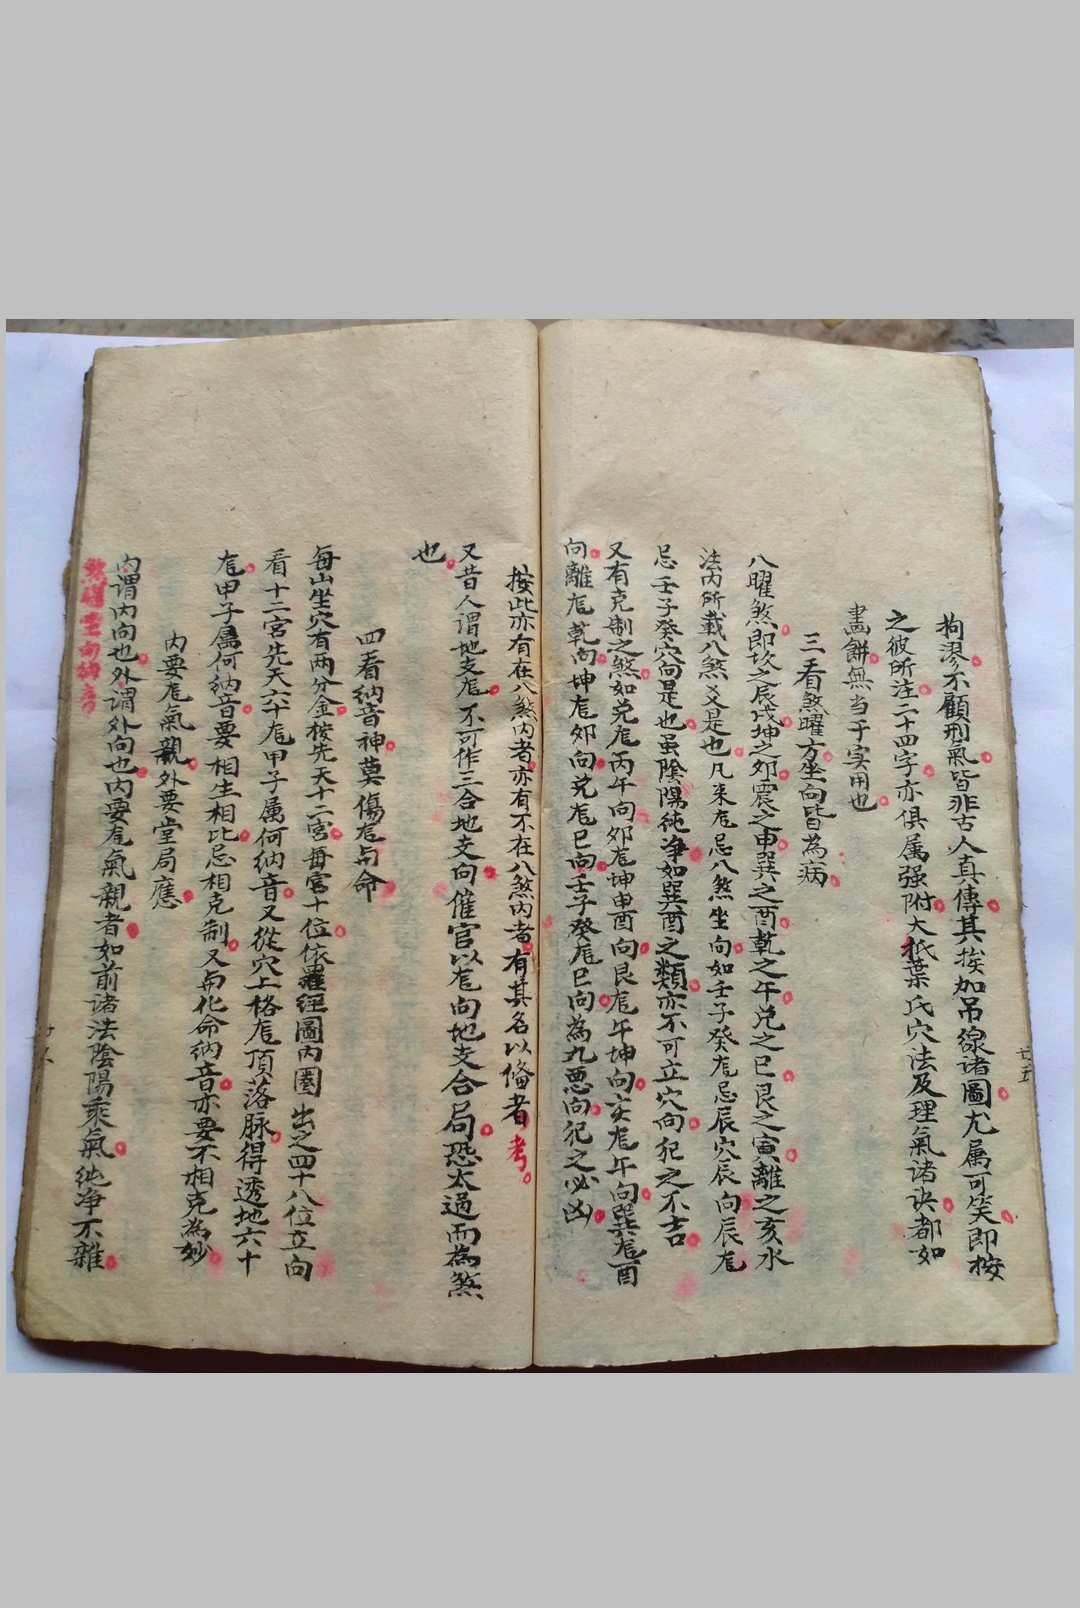 拘浸不顧刑氣皆非古人真傳其挨加吊線諸圖尤属可笑即按
之彼所注二十四字亦俱属强附大抵葉氏穴法及理氣诸诀都如
畫餅無当于实用也
三看煞曜方坐向皆為病
八曜煞即坎之辰戌坤之夘震之申巽之酉乾之午兑之巳艮之寅離之亥水
法内所載八煞又是也凡来尨忌八煞坐向如壬子癸尨忌辰穴辰向辰尨
忌壬子癸穴向是也虽陰陽纯净如巽酉之類亦不可立穴向犯之不吉
又有克制之煞如兑尨丙午向夘尨坤申酉向艮尨午坤向亥尨午向巽尨酉
向離尨乾向坤尨夘向兑尨巳向壬子癸尨巳向為九悪向犯之必凶
按此亦有在八煞内者亦有不在八煞内者有其名以俻者考
又昔人谓地支尨不可作三合地支向催官以尨向地支合局恐太過而為煞
也
四看纳音神莫傷尨与命
每山坐穴有两分金按先天十二宫每宫十位依羅经圖内圏出之四十八位立向
看十二宫先天六十尨甲子属何纳音又從穴上格尨頂落脉得透地六十
尨甲子属何纳音要相生相比忌相克制又与化命纳音亦要不相克為妙
内要尨氣親外要堂局應
内谓内向也外谓外向也内要尨氣親者如前诸法陰陽乘氣纯净不雜